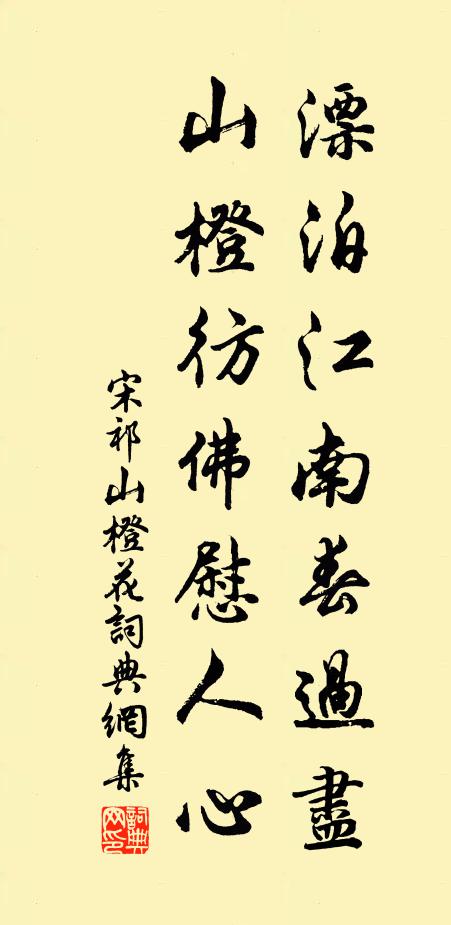 漂泊江南春過盡
山橙彷佛慰人心
宋祁山橙花詞典網集
詞典网印